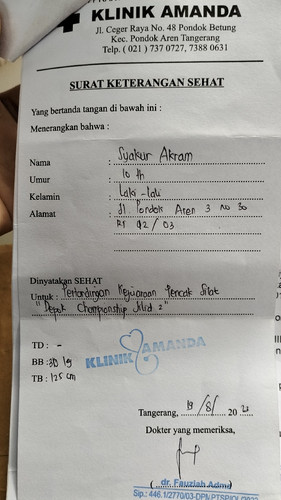 KLINIK AMANDA
Jl. Ceger Raya No. 48 Pondok Betung
Kec. Pondok Aren Tangerang
Telp. ( 021 ) 737 0727, 7388 0631
SURAT KETERANGAN SEHAT
Yang bertanda tangan di bawah ini :
Menerangkan bahwa :
Nama : Syakur Akram
Umur : 10 th
Kelamin : Laki - laki
Alamat : Jl Pondok Aren 3 No 30
RT 02 / 03
Dinyatakan SEHAT
Untuk : Pertandingan Kejuaraan Pencak Silat
"Depok Championship Jilid 2"
TD : -
BB : 30 kg
TB : 125 cm
KLINIK AMANDA
Tangerang, 19 / 8 / 20 22
Dokter yang memeriksa,
( dr. Fauziah Adma )
Sip.: 446.1/2770/03-DPMPTSP/OL/2022